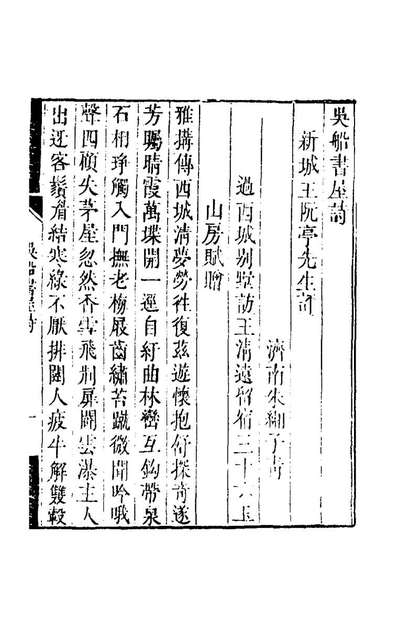 吳船書屋詩
新城王阮亭先生訂
濟南朱緗子青
過西城別墅訪王清遠留宿三十六玉
山房賦贈
雅搆傳西城清夢勞徃復茲遊懷抱舒探竒遂
芳矚晴霞萬堞開一逕自紆曲林巒互鈎帶泉
石相琤觸入門撫老梅屐齒繡苔蹴微聞吟哦
聲四顧失茅屋忽然杏雪飛荆扉闢雲瀑主人
出迓客鬚眉結寒綠不厭排闥人疲牛解雙轂
吳船書屋詩
一